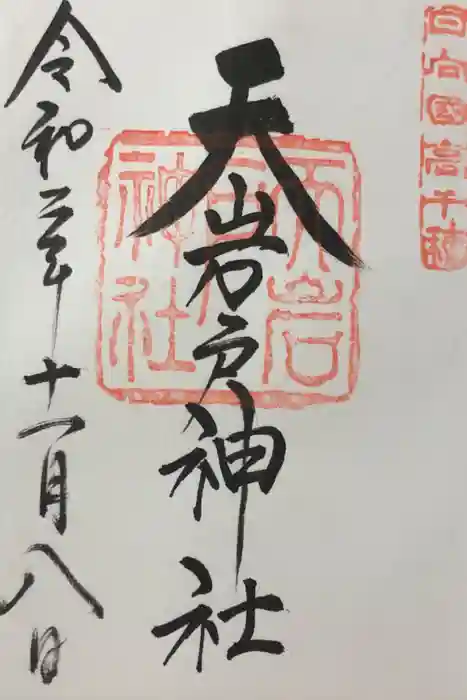 日向國高千穂
天岩戸神社
天岩
戸
神社
令和二年十一月八日